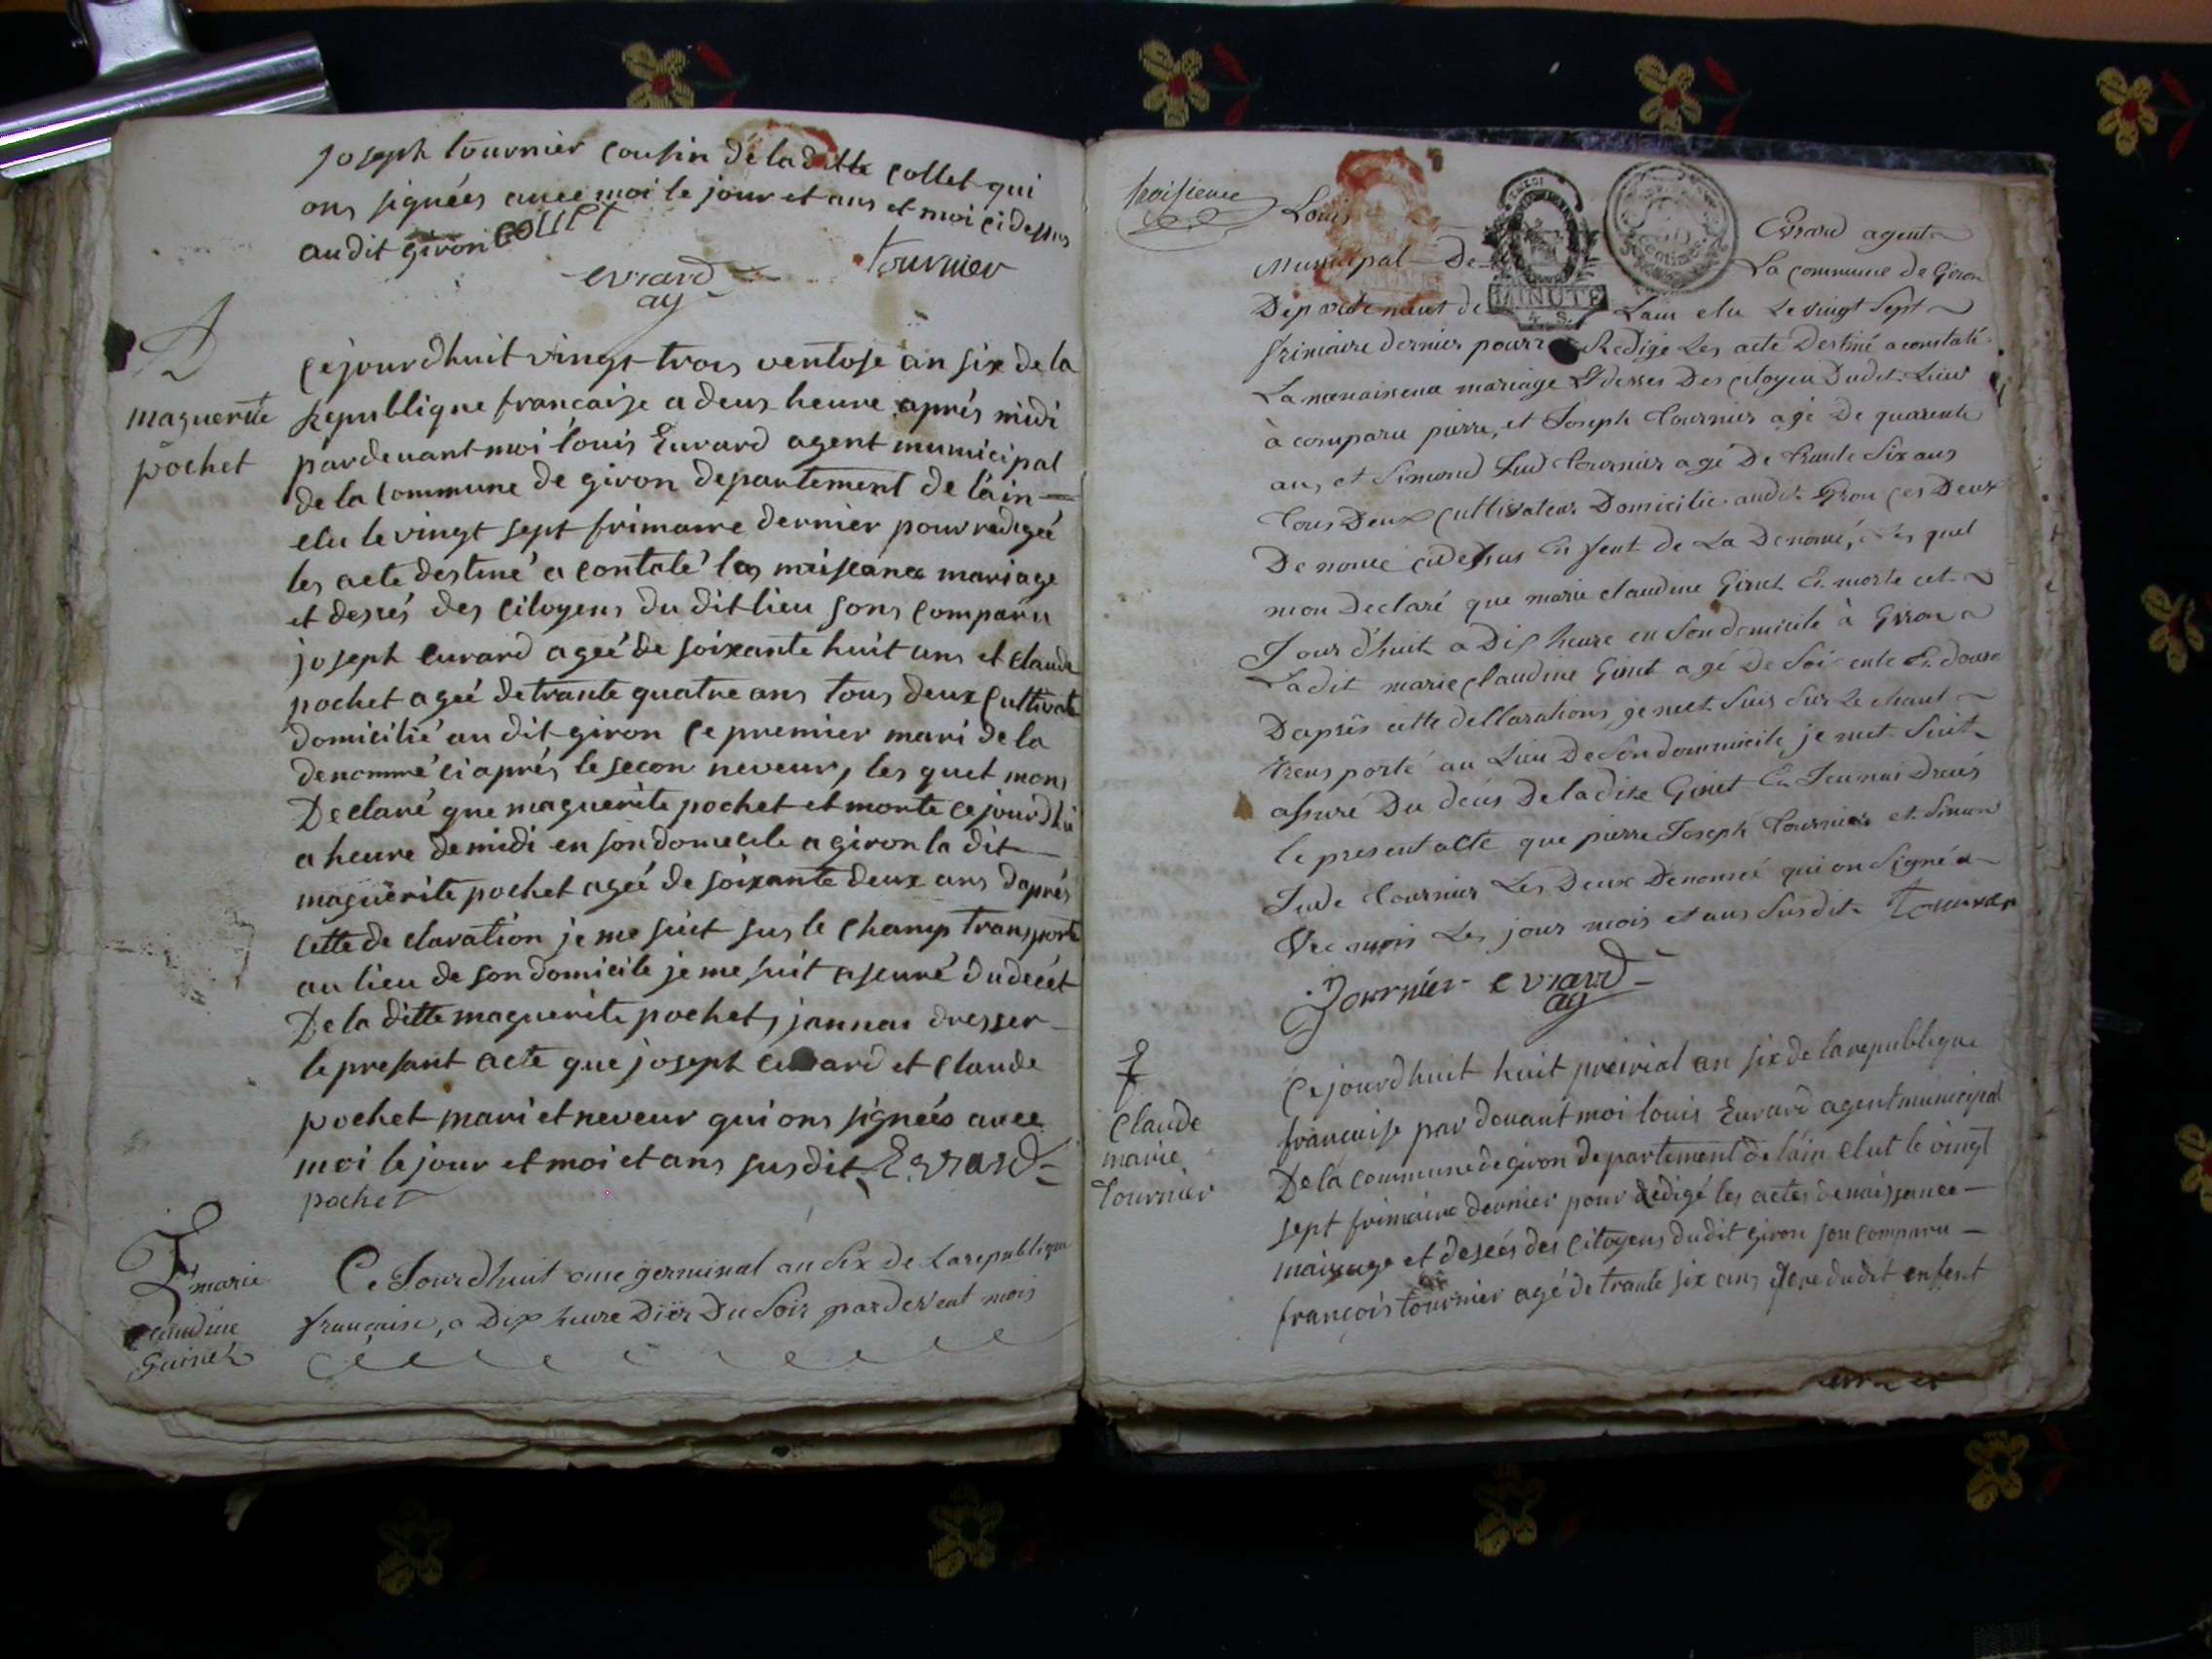 joseph tournier cousin de la ditte collet qui
ons signées avec moi le jour et ans et moi ci dessus
au dit giron collet
evrard tournier
ag
maguerite
pochet
cejourdhuit vingt trois ventose an six de la
Republique francaise a deus heure aprés midi
pardevant moi louis Evrard agent municipal
de la commune de giron departement de lain
elu le vingt sept frimaire dernier pour redigée
les acte destiné a contaté las naiseance mariage
et desrés des citoyens du dit lieu sons comparu
joseph evrard ageé de soixante huit ans et claude
pochet ageé de trante quatre ans tous deux cultivate
domicilié au dit giron le premier mari de la
denommé ci aprés le secon neveur, les quet mons
Declaré que maguerite pochet et morte ce jourdhui
a heure de midi en son domecile a giron la dit
maguerite pochet ageé de soixante deux ans daprés
cette declaration je me suit sus le champ transporté
au lieu de son domicile je me suit aseuré du decét
De la ditte maguerite pochet, jannai dresser
le presant acte que joseph evrard et claude
pochet mari et neveur qui ons signées avec
moi le jour et moi et ans susdit Evrard
pochet
marie
claudine
Guinet
Ce Jourdhuit onse germinal an Six de La republique
francaise, a Dix heure Dier Du Soir pardevent mois
troisieme
Louis Evrard agent
Municipal De La commune de Giron
MINUTE
Departement de Lain elu Le vingt Sept
frimaire dernier pour Redige Les acte Destiné a constaté
La naissence mariage Et desses Des citoyen Dudit Lieu
à comparu pierre, et Joseph Tournier agé De quarente
an, et Simond Jud Tournier agé De trante Six ans
Tous Deux Cultivateur Domicilie audit Giron ces Deux
De nomé cidessus En fent de La Denomé, Les quel
mon Declaré que marie claudine Ginet Et morte cet
Jour d'huit a Dix heure en Son domicile à Giron
Ladit marie claudine Ginet agé De Soisente Et douse
Daprés cette dellarations, je met Suis Sur Le chant
trensporté au Lieu De Son doumicile je met Suit
assuré Du décés De la dite Ginet En Jennai Dresés
le present acte que pierre Joseph Tournier et Simon
Jude Tournier Les Deux Denomé qui on Signé a
Vec mois Les jour mois et ans Susdit Tournier
Tournier evrard
ag
claude
marie
Tournier
Cejourdhuit huit preirial an six de la republique
francaise par devant moi louis Evrard agent municipal
De la commune de giron departement de lain elut le vingt
sept frimaire dernier pour redigé les actes de naissance
mairage et deseés des citoyens dudit giron son comparu
françois tournier agé de trante six ans pere dudit enfent